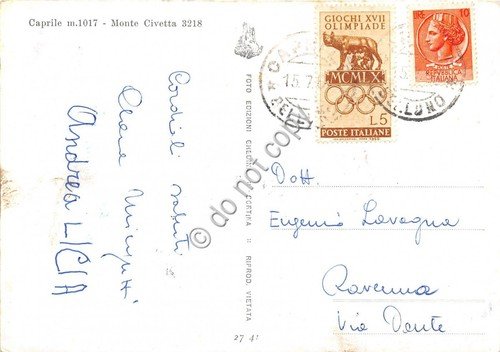 Caprile m.1017 - Monte Civetta 3218
GIOCHI XVII
OLIMPIADE
MCMLX
L.5
POSTE ITALIANE
LIRE 10
REPUBBLICA
ITALIANA
15.7
BELLUNO
Cordiali saluti
Andrea LICIA
FOTO EDIZIONI GHEDINA CORTINA
RIPROD. VIETATA
do not copy
Dott.
Eugenio Lavagna
Ravenna
Via Dante
27 41